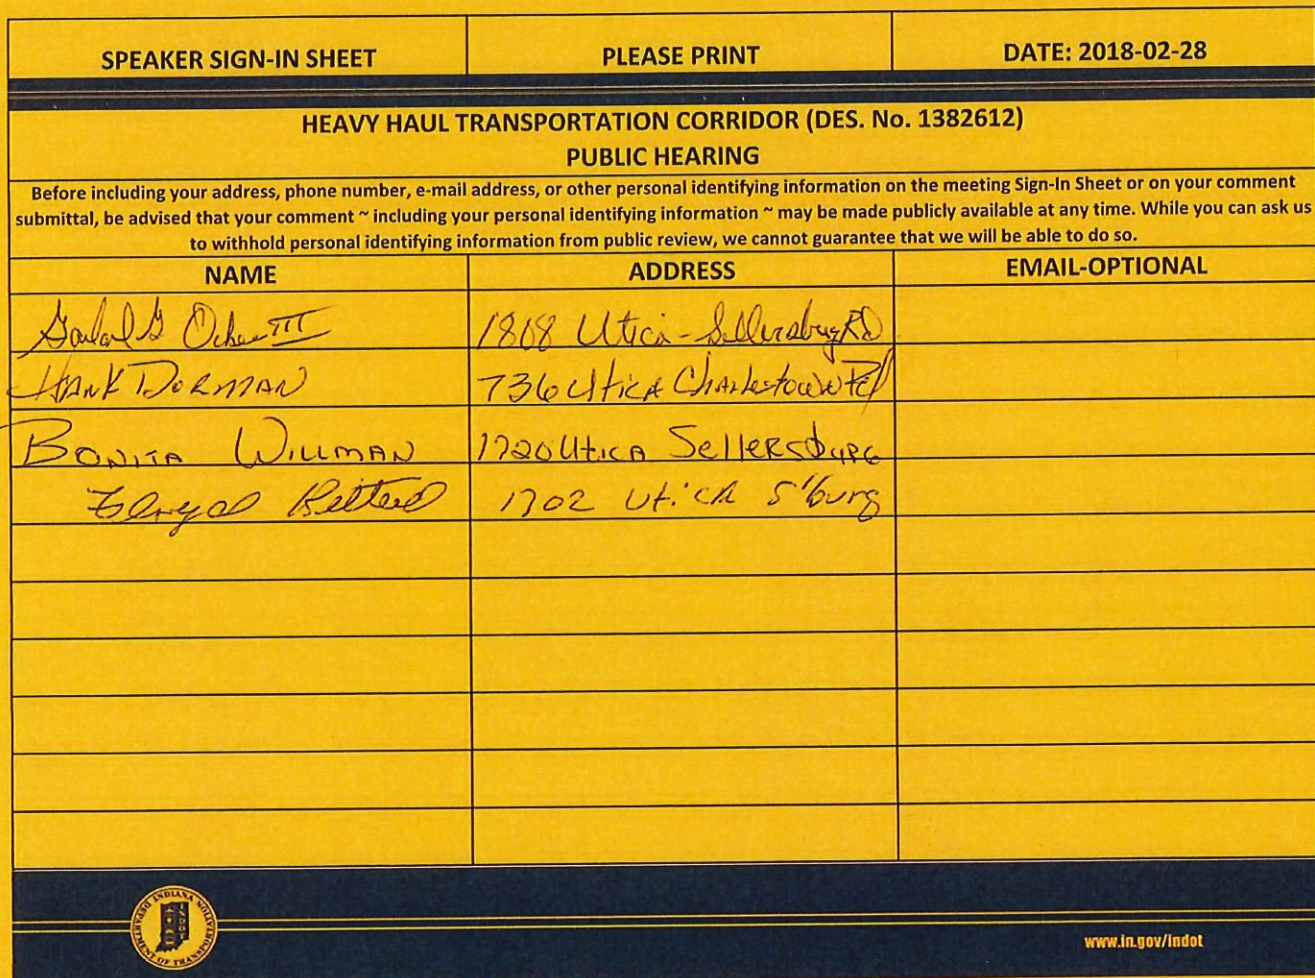 SPEAKER SIGN-IN SHEET PLEASE PRINT DATE: 2018-02-28
HEAVY HAUL TRANSPORTATION CORRIDOR (DES. No. 1382612)
PUBLIC HEARING
Before including your address, phone number, e-mail address, or other personal identifying information on the meeting Sign-In Sheet or on your comment
submittal, be advised that your comment ~ including your personal identifying information ~ may be made publicly available at any time. While you can ask us
to withhold personal identifying information from public review, we cannot guarantee that we will be able to do so.
NAME ADDRESS EMAIL-OPTIONAL
III 1808 Utica-Sellersburg RD
HANK DORMAN 736 Utica Charlestown Rd
BONITA WILLMAN 1720 Utica Sellersburg
1702 Utica S'burg
INDIANA
DEPARTMENT OF TRANSPORTATION
www.in.gov/indot